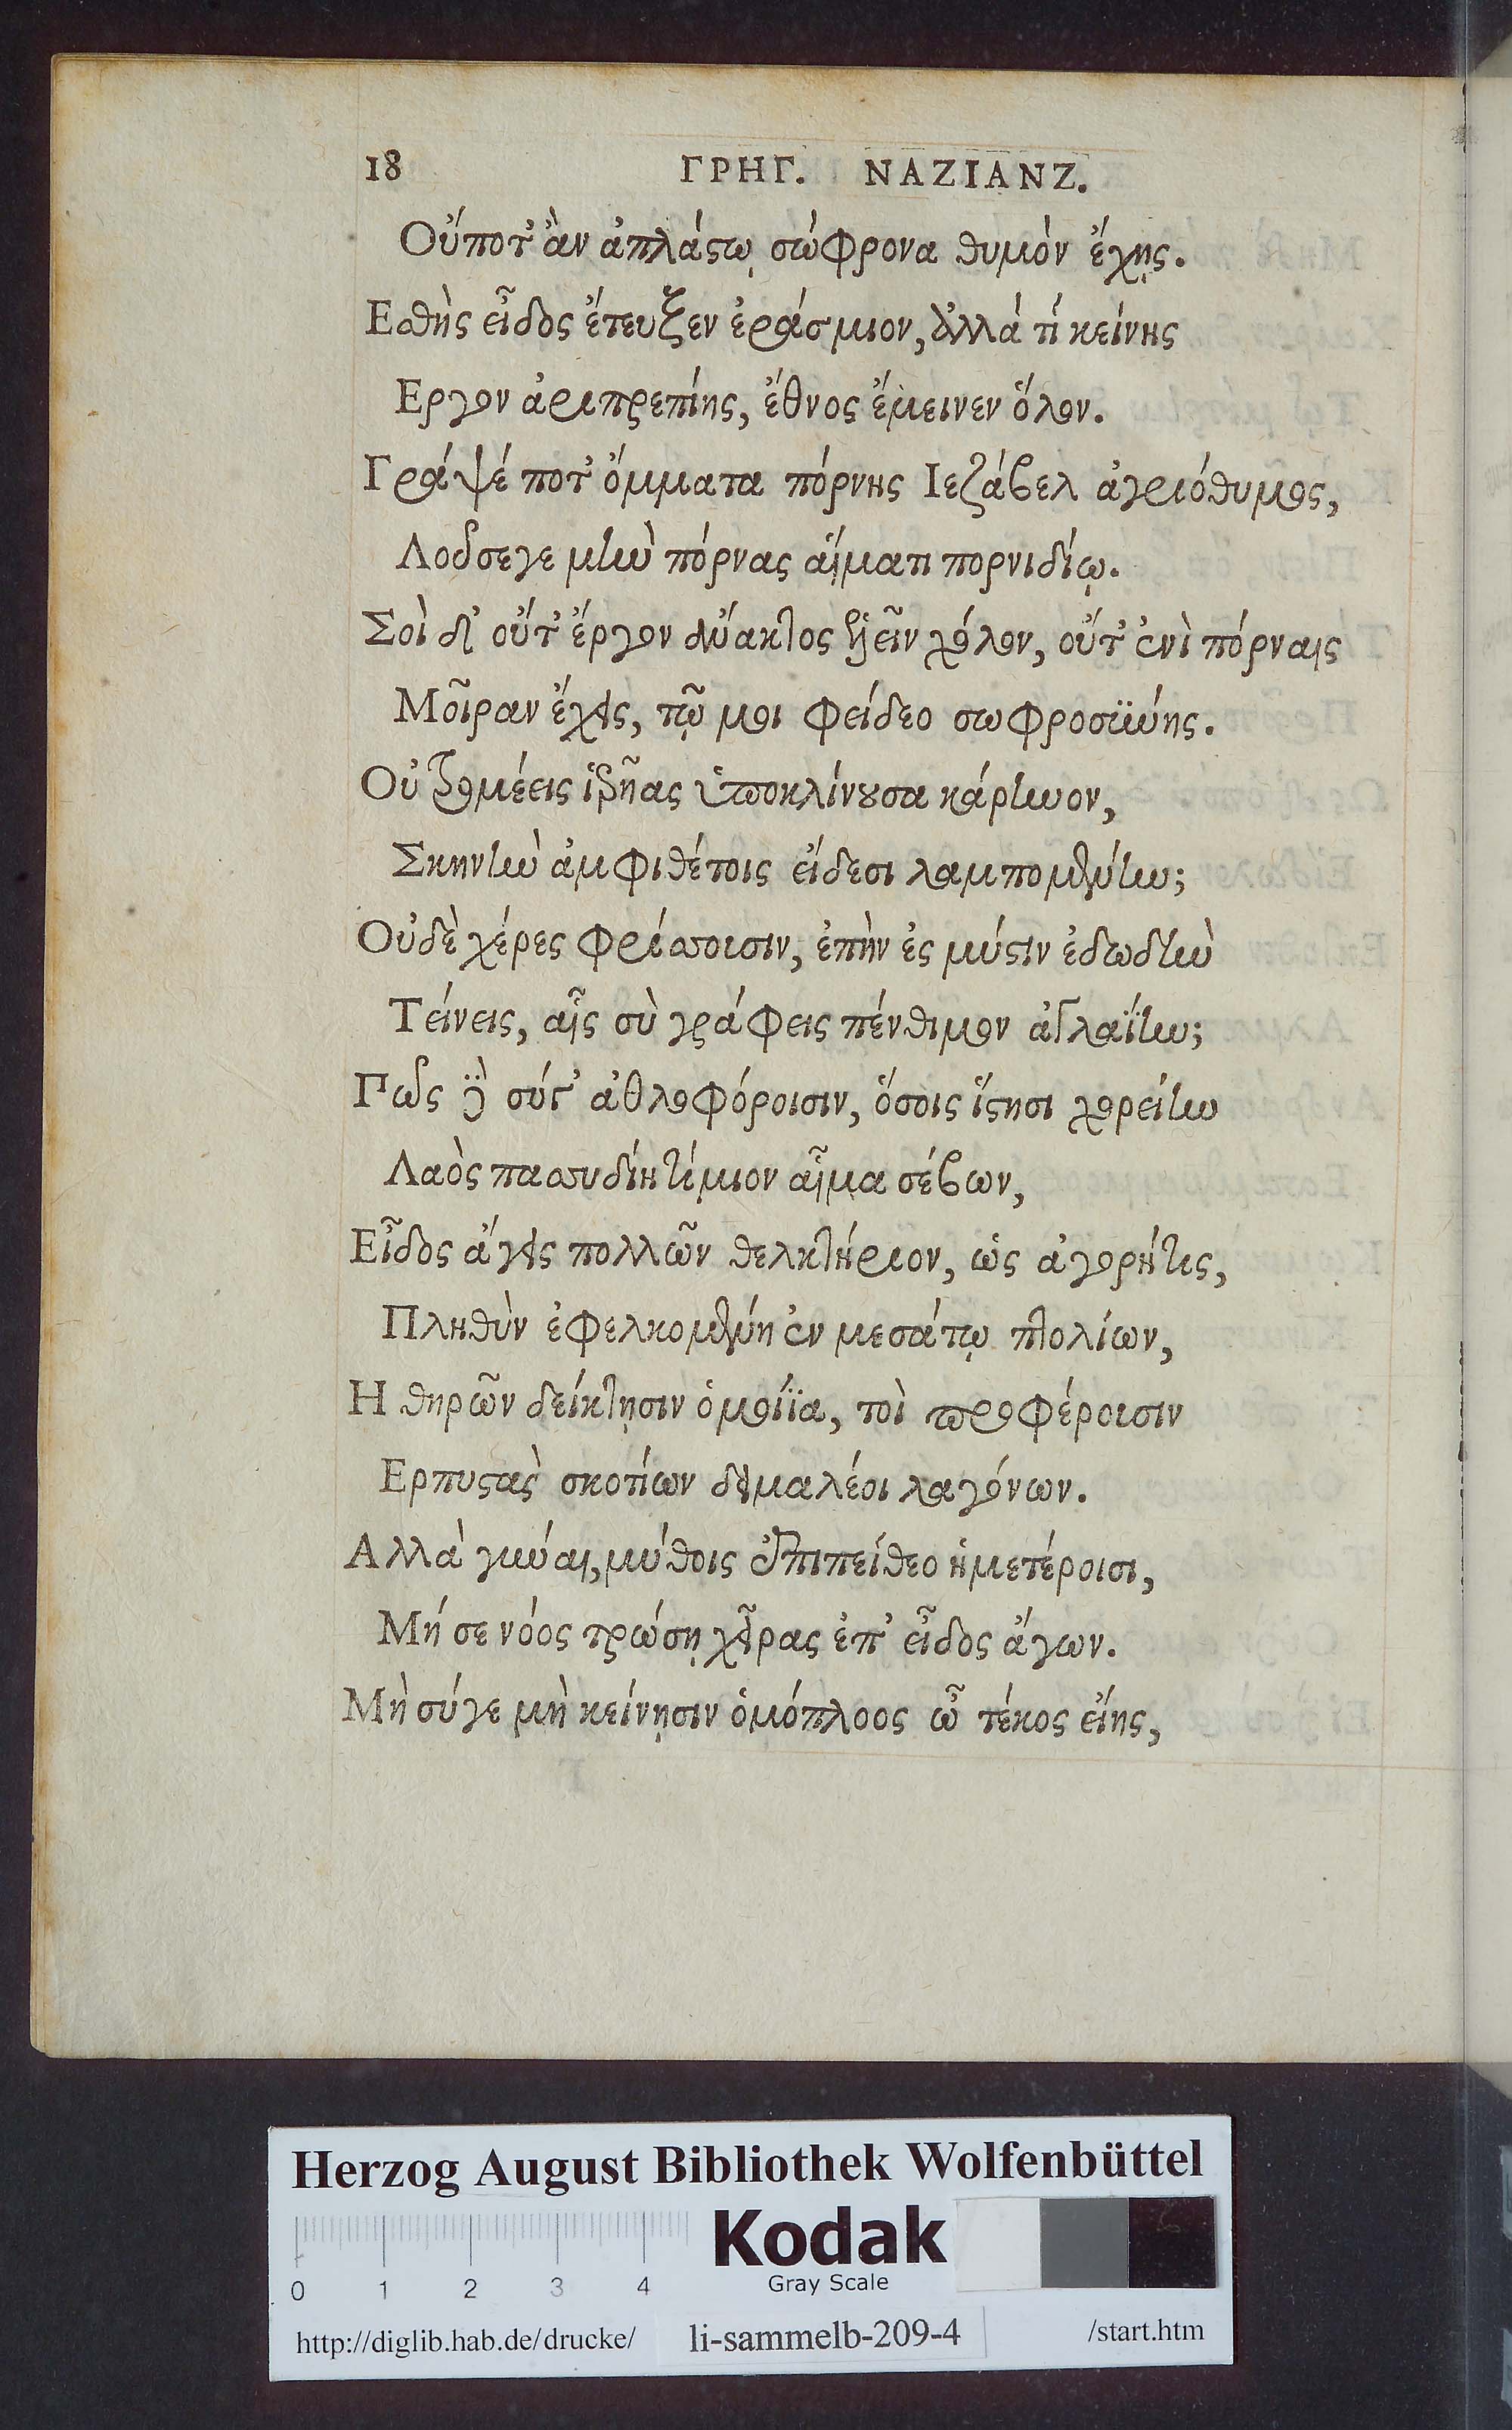 18 ΓΡΗΓ. ΝΑΖΙΑΝΖ.
Οὔποτ' ἂν ἀπλάστῳ σώφρονα θυμὸν ἔχῃς.
Εσθὴς εἶδος ἔτευξεν ἐράσμιον, ἀλλά τί κείνης
Εργον ἀριπρεπίης, ἔθνος ἔμεινεν ὅλον.
Γράψέ ποτ' ὄμματα πόρνης Ιεζάβελ ἀγριόθυμος,
Λοῦσεγε μὴν πόρνας αἵματι πορνιδίῳ.
Σοὶ δ' οὔτ' ἔργον ἄνακτος ἕξειν χόλον, οὔτ' ἐνὶ πόρναις
Μοῖραν ἔχεις, τῷ μοι φείδεο σωφροσύνης.
Οὐ τρομέεις ἱρῆας ὑποκλίνουσα κάρηνον,
Σκηνὴν ἀμφιθέτοις εἴδεσι λαμπομένην;
Οὐδὲ χέρες φρίσσοισιν, ἐπὴν ἐς μύστιν ἐδωδὴν
Τείνεις, αἷς σὺ γράφεις πένθιμον ἀγλαΐην;
Πῶς δὲ σύγ' ἀθλοφόροισιν, ὅσοις ἵστησι χορείην
Λαὸς πασσυδίη τίμιον αἷμα σέβων,
Εἶδος ἄγεις πολλῶν θελκτήριον, ὡς ἀγορῆτις,
Πληθὺν ἐφελκομένη ἐν μεσάτῳ πτολίων,
Η θηρῶν δείκτῃσιν ὁμοίϊα, τοὶ προφέροισιν
Ερπυστὰς σκοτίων δειμαλέοι λαγόνων.
Αλλὰ γύναι, μύθοις ἐπιπείθεο ἡμετέροισι,
Μή σε νόος τρώσῃ χεῖρας ἐπ' εἶδος ἄγων.
Μὴ σύγε μὴ κείνῃσιν ὁμόπλοος ὦ τέκος εἴης,
Herzog August Bibliothek Wolfenbüttel
Kodak
Gray Scale
0 1 2 3 4
http://diglib.hab.de/drucke/ li-sammelb-209-4 /start.htm